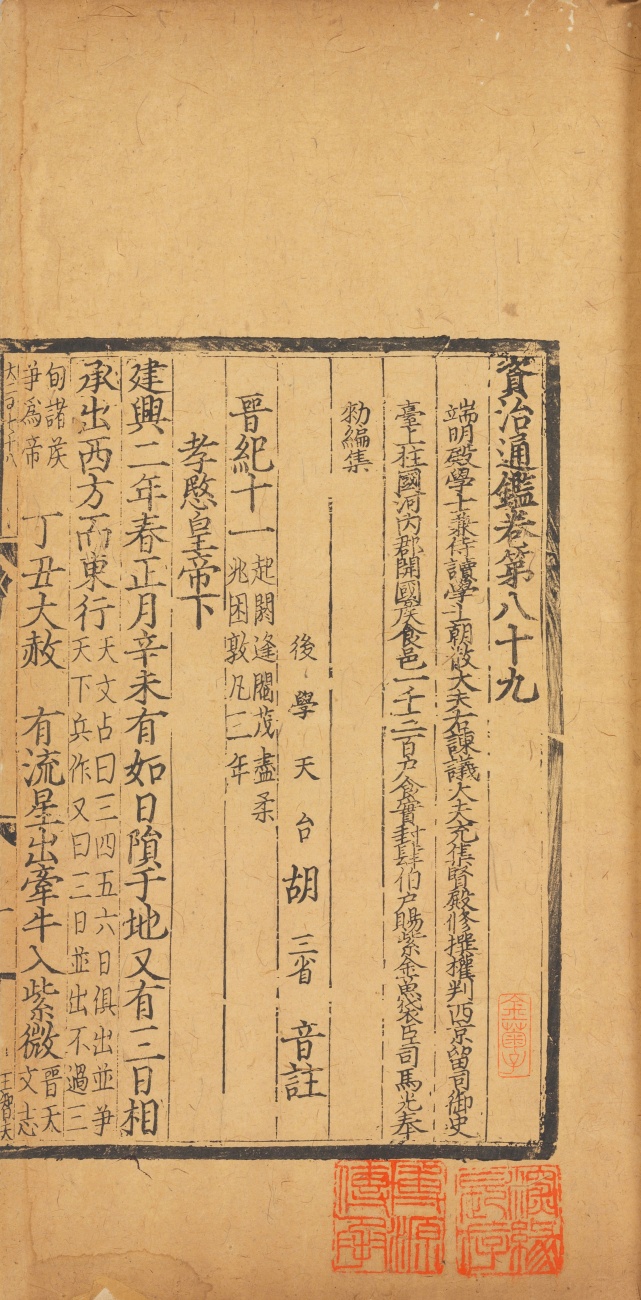 資治通鑑卷第八十九
端明殿學士兼侍讀學士朝散大夫右諫議大夫充集賢殿修撰權判西京留司御史
臺上柱國河內郡開國侯食邑一千三百戶食實封肆伯戶賜紫金魚袋臣司馬光奉
勑編集
後學天台胡三省音註
晉紀十一起閼逢閹茂盡柔
兆困敦凡三年
孝愍皇帝下
建興二年春正月辛未有如日隕于地又有三日相
承出西方而東行天文占曰三四五六日俱出並爭
天下兵作又曰三日並出不過三
旬諸侯
爭爲帝
丁丑大赦 有流星出牽牛入紫微晉天
文志
大二百七十八